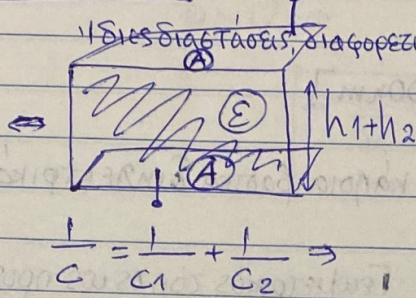 ίδιες διαστάσεις, διαφορετι
A
ε
⇔
h1+h2
A
1/C = 1/C1 + 1/C2 ⇒